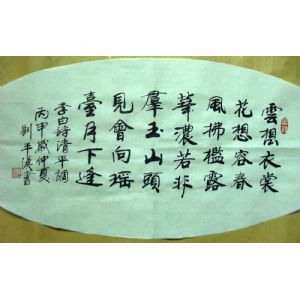 雲想衣裳
花想容春
風拂檻露
華濃若非
羣玉山頭
見會向瑶
臺月下逢
李白詩清平調
丙申歲仲夏
劉平書